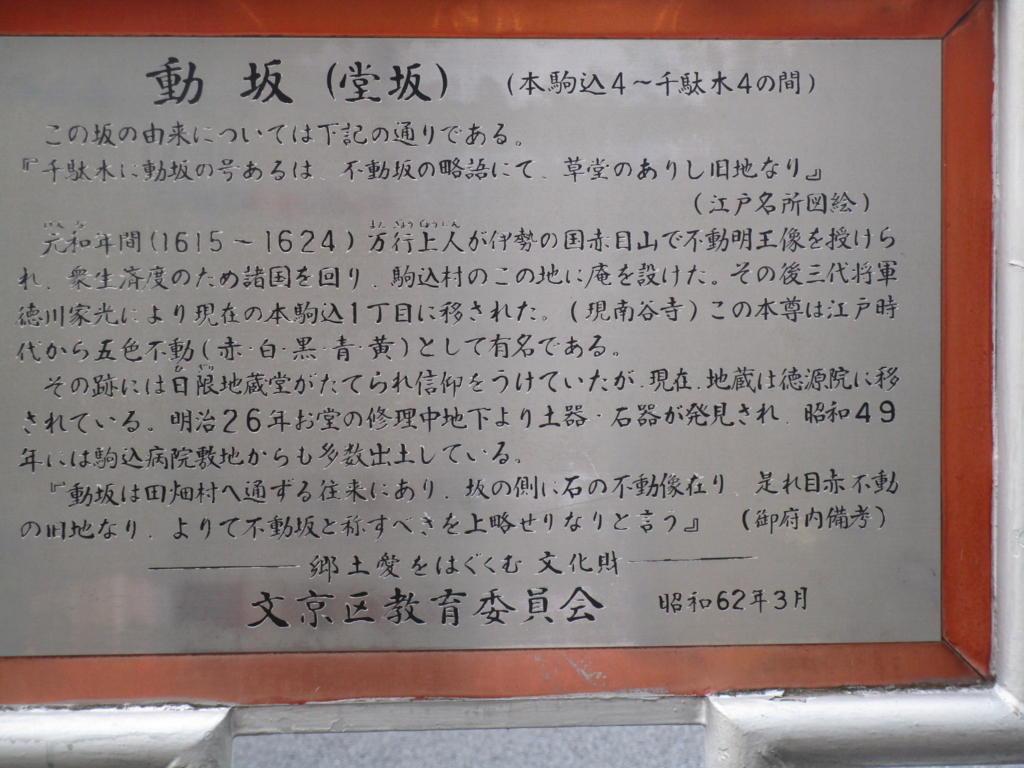 動坂(堂坂) (本駒込4~千駄木4の間)
この坂の由来については下記の通りである。
『千駄木に動坂の号あるは、不動坂の略語にて、草堂のありし旧地なり』
(江戸名所図絵)
元和年間(1615~1624)万行上人が伊勢の国赤目山で不動明王像を授けら
れ、衆生済度のため諸国を回り、駒込村のこの地に庵を設けた。その後三代将軍
徳川家光により現在の本駒込1丁目に移された。(現南谷寺)この本尊は江戸時
代から五色不動(赤・白・黒・青・黄)として有名である。
その跡には日限地蔵堂がたてられ信仰をうけていたが、現在、地蔵は徳源院に移
されている。明治26年お堂の修理中地下より土器・石器が発見され、昭和49
年には駒込病院敷地からも多数出土している。
『動坂は田畑村へ通ずる往来にあり、坂の側に石の不動像在り 是れ目赤不動
の旧地なり、よりて不動坂と称すべきを上略せりなりと言う』 (御府内備考)
郷土愛をはぐくむ文化財
文京区教育委員会 昭和62年3月